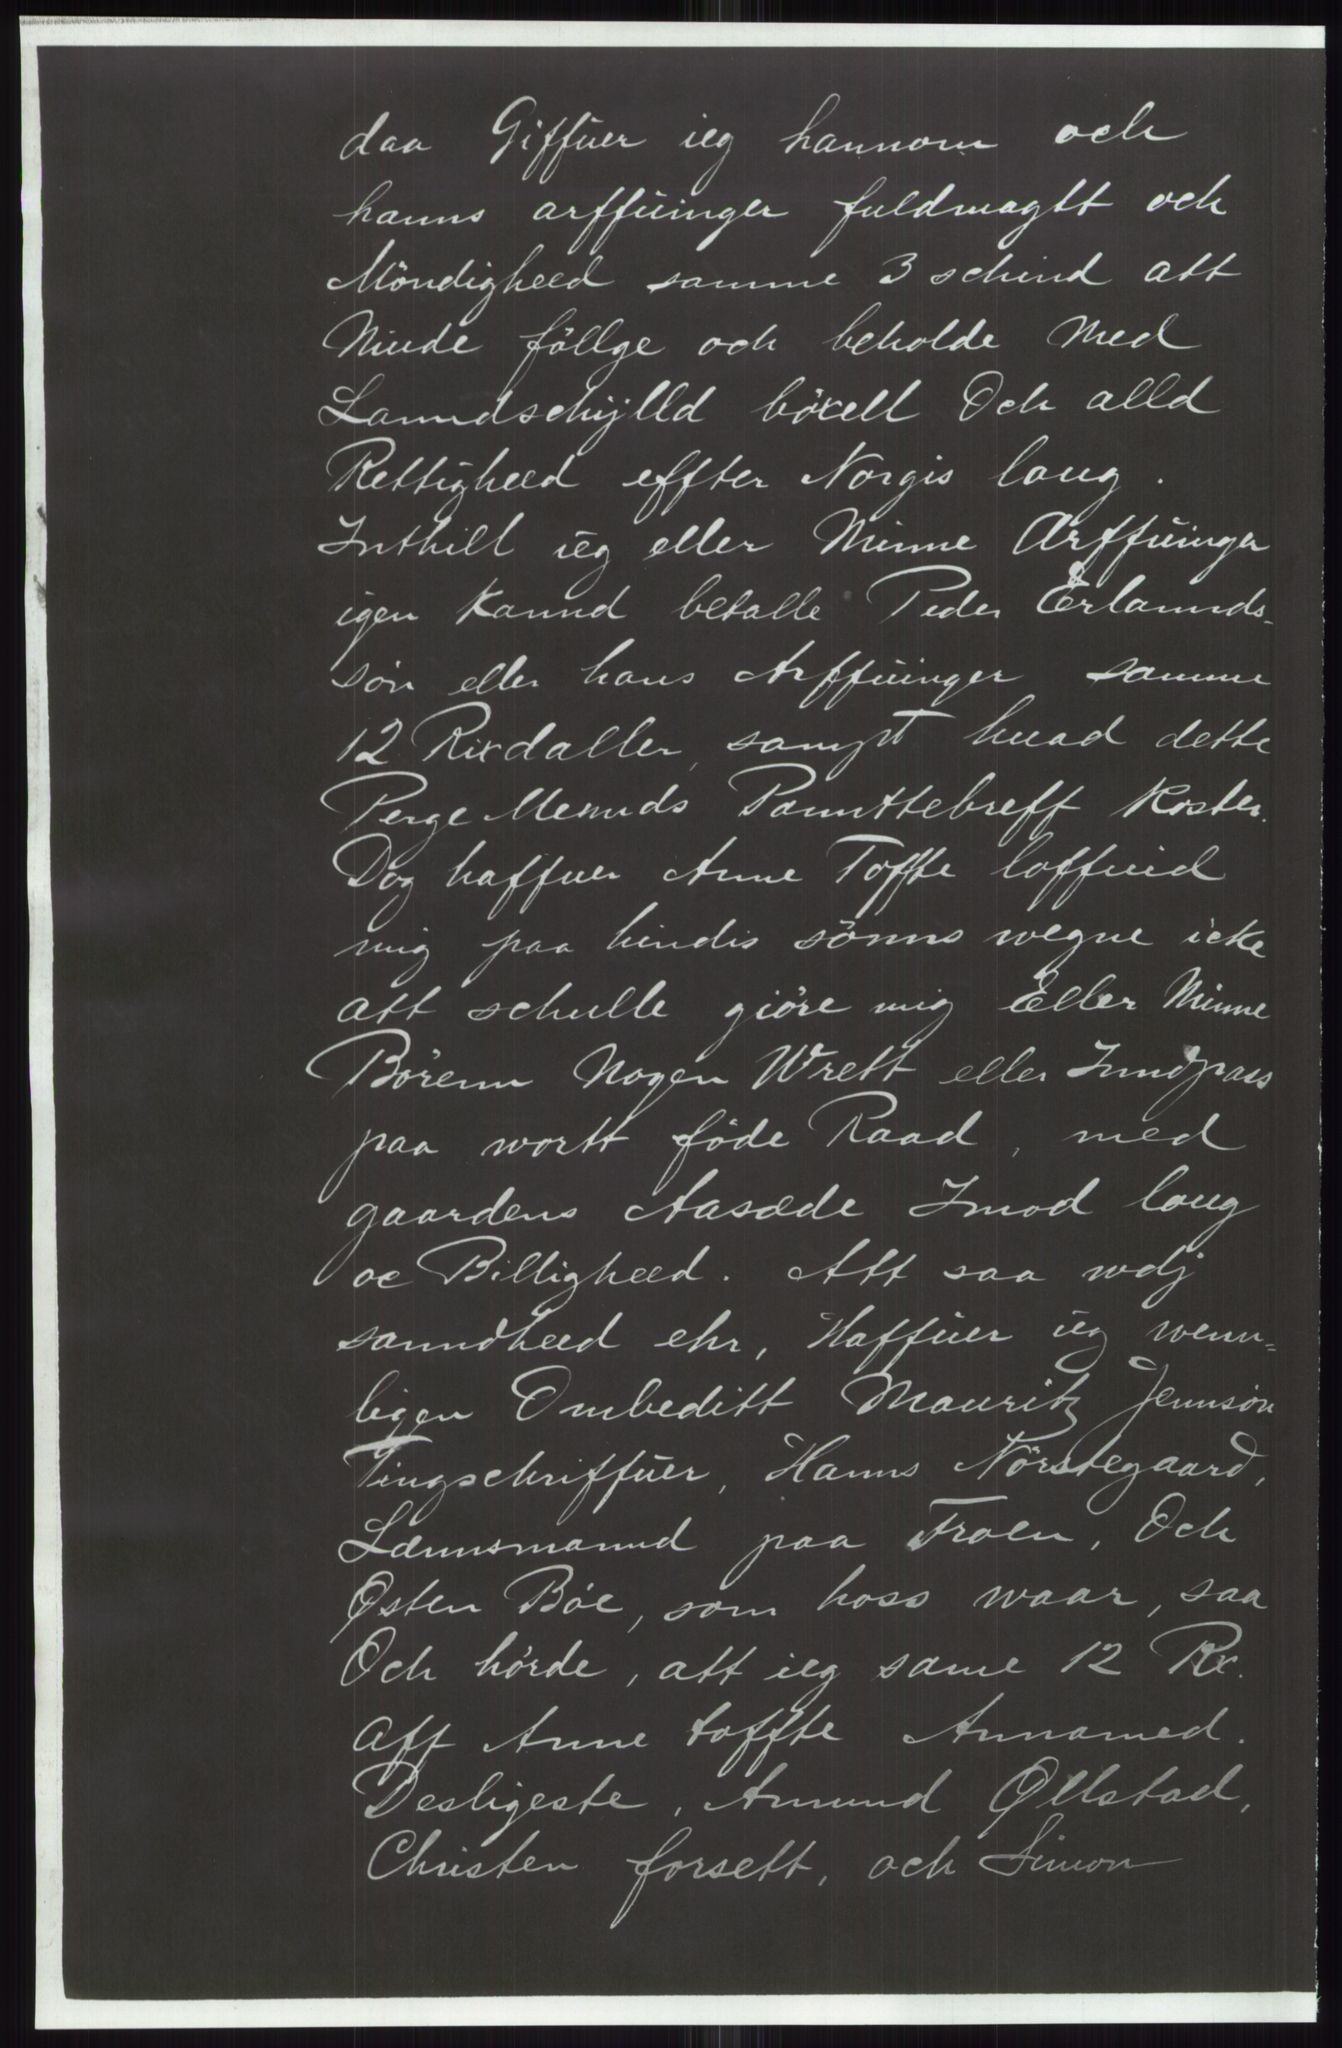 daa Giffuer ieg hannom och
hanns arffuinger fuldmagtt och
Möndigheed samme 3 schind att
Niude föllge och beholde Med
Lanndschylld böxell Och alld
Rettigheed effter Norgis laug.
Inthill ieg eller Minne Arffuinger
igen Kannd betalle Peder Erlannds-
sön eller hans Arffuinger samme
12 Rixdaller, sampt huad dette
PergeMennds Panttebreff Koster.
Dog haffuer Anne Toffte loffuid
mig paa hindis sönns wegne icke
att schulle giöre mig Eller Minne
Börenn Nogen Wrett eller Inndpass
paa wortt föde Raad, med
gaardens Aasæde Imod loug
oc Billigheed. Att saa wdj
sanndheed ehr, Haffuer ieg wenn-
ligen Ombeditt Mauritz Jennsön
Tingschriffuer, Hanns Nörstegaard,
Lænnsmannd paa Froen, Och
Østen Böe, som hoss waar, saa
Och hörde, att ieg same 12 Rx.
Aff Anne toffte Annamed.
Desligeste, Amund Øllstad,
Christen forsett, och Simon